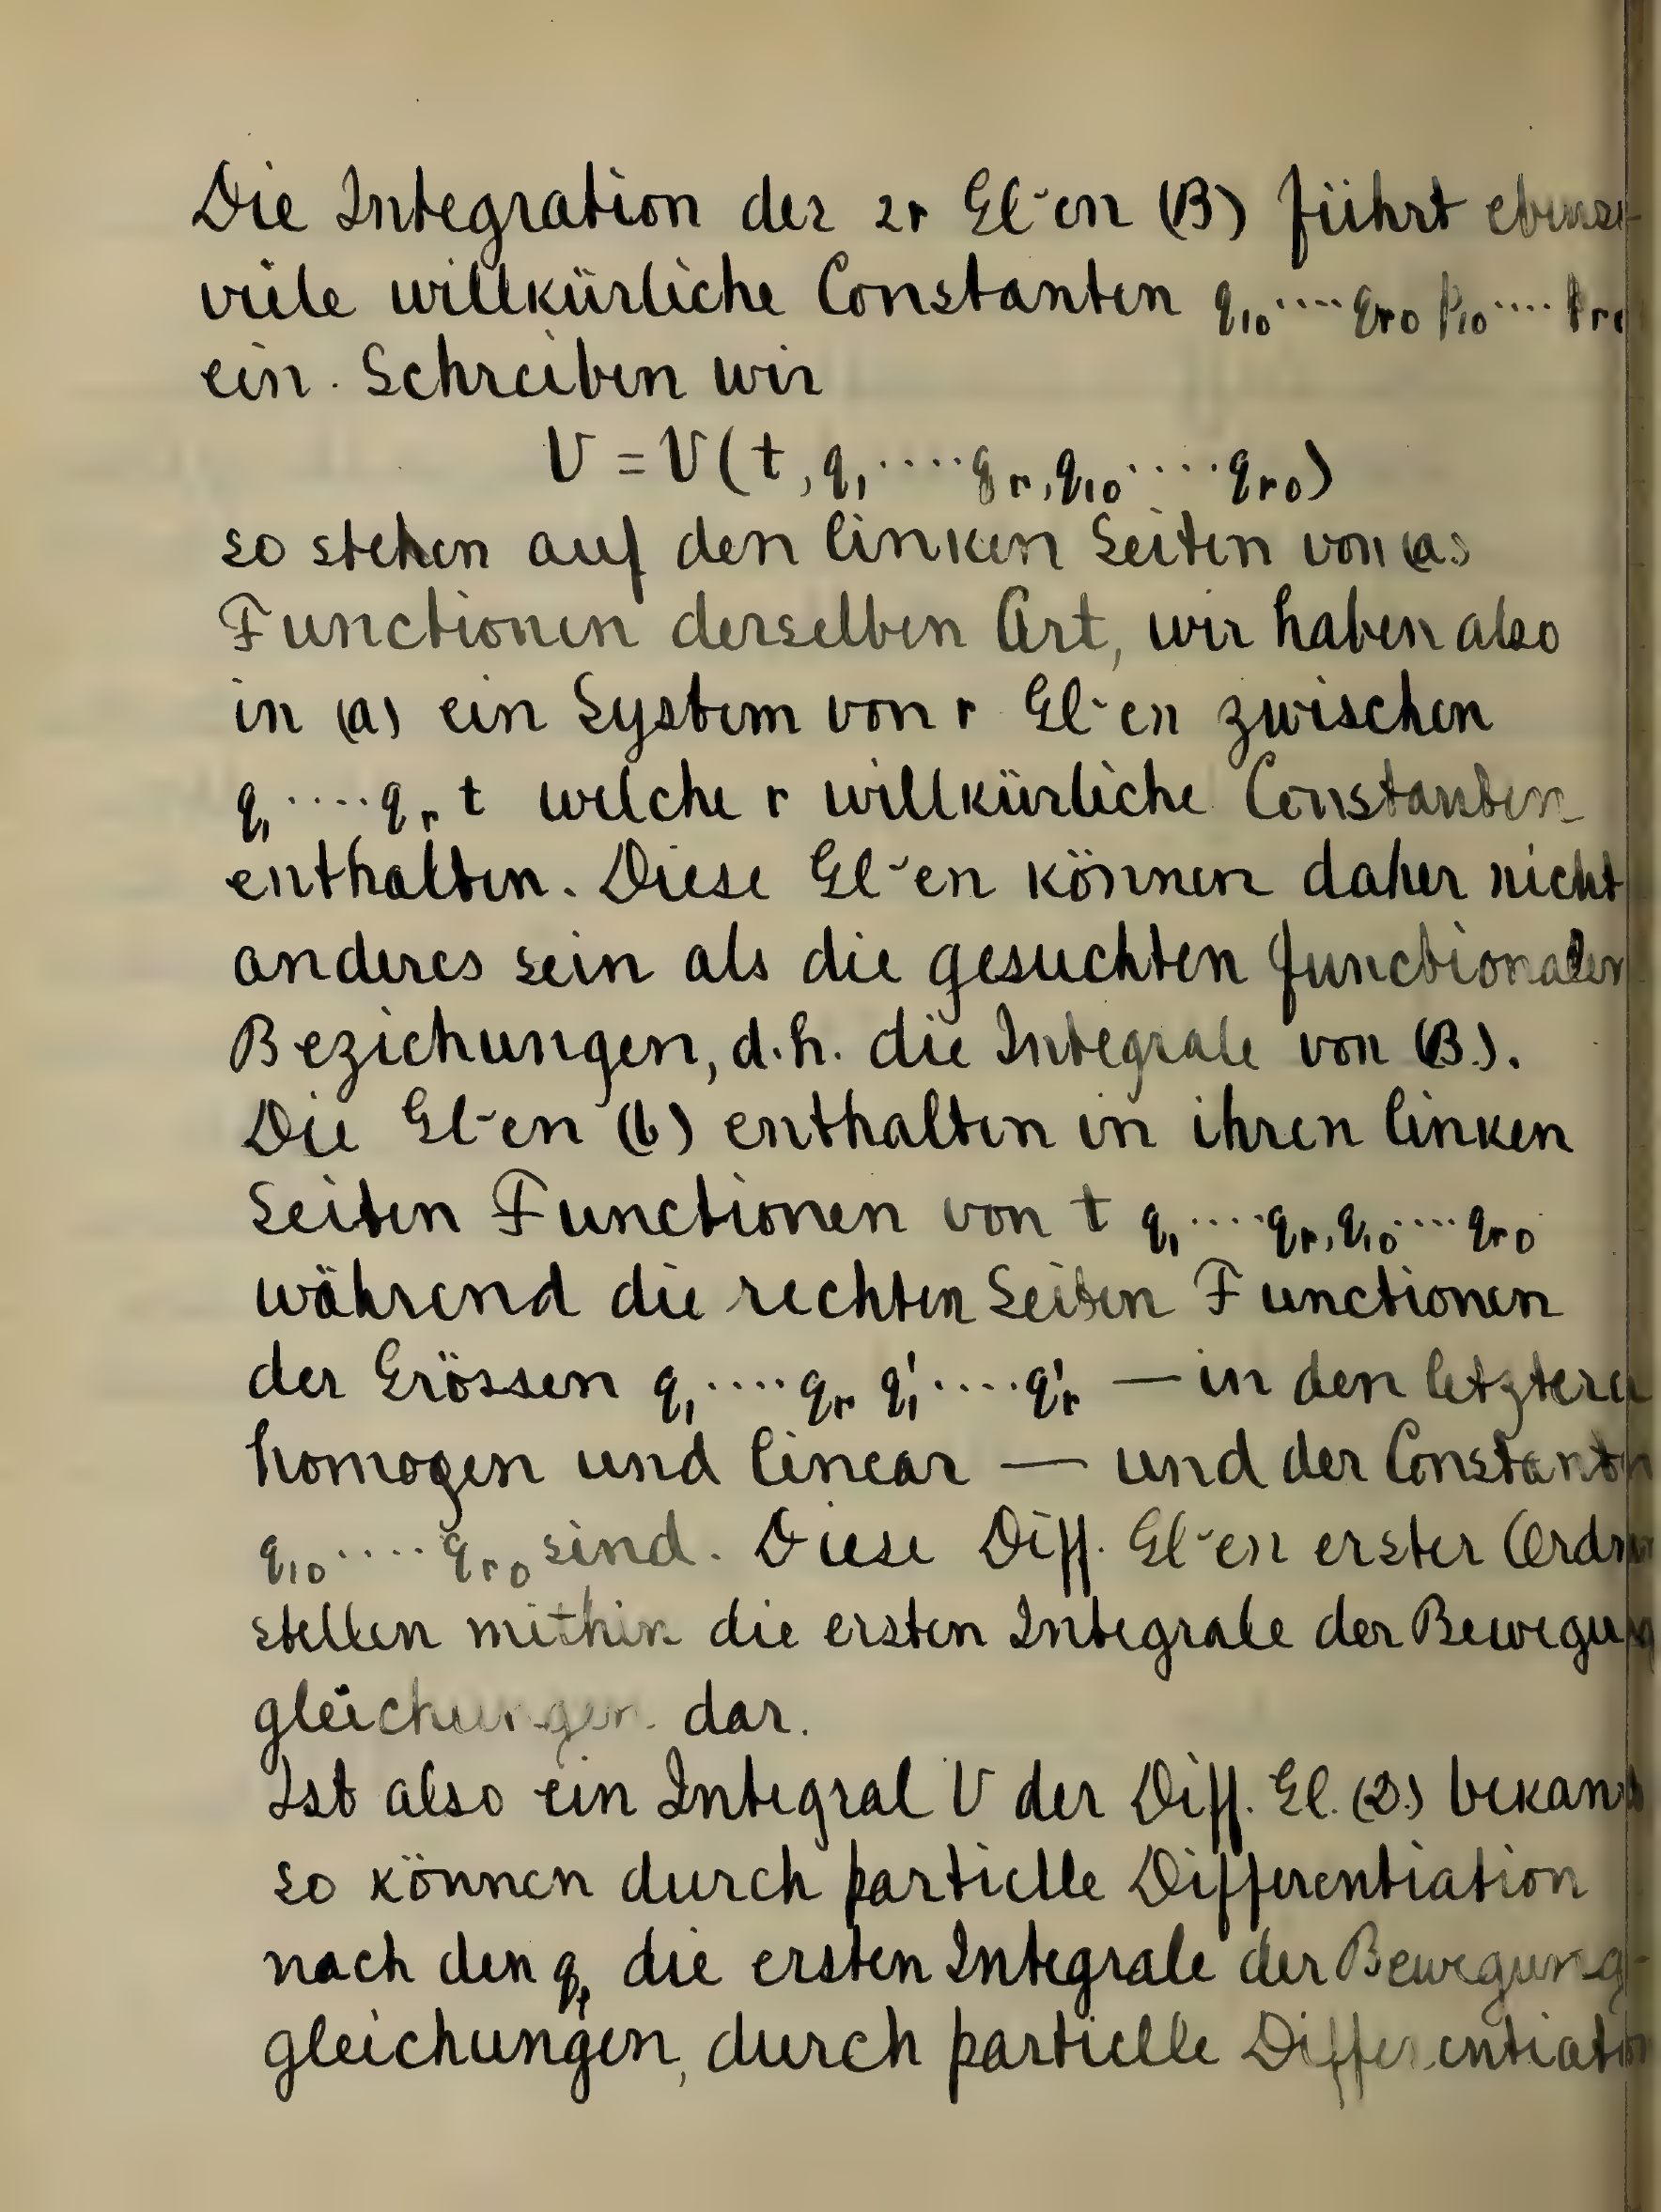 Die Integration der 2r Gl-en (B) führt ebenso-
viele willkürliche Constanten q₁₀....qᵣ₀ p₁₀....pᵣ₀
ein. Schreiben wir
V = V(t, q₁....qᵣ, q₁₀....qᵣ₀)
so stehen auf den linken Seiten von (a)
Functionen derselben Art, wir haben also
in (a) ein System von r Gl-en zwischen
q₁....qᵣ t welche r willkürliche Constanten
enthalten. Diese Gl-en können daher nicht
anderes sein als die gesuchten functionalen
Beziehungen, d.h. die Integrale von (B.).
Die Gl-en (b) enthalten in ihren linken
Seiten Functionen von t q₁....qᵣ, q₁₀....qᵣ₀
während die rechten Seiten Functionen
der Grössen q₁....qᵣ q₁'....qᵣ' — in den letzteren
homogen und linear — und der Constanten
q₁₀....qᵣ₀ sind. Diese Diff. Gl-en erster Ordn
stellen mithin die ersten Integrale der Bewegung
gleichungen dar.
Ist also ein Integral V der Diff. Gl. (2.) bekannt
so können durch partielle Differentiation
nach den q₁ die ersten Integrale der Bewegung-
gleichungen, durch partielle Differentiation